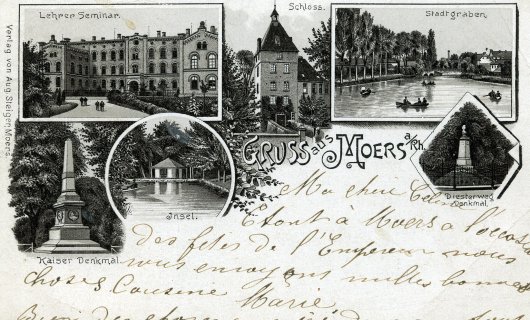 Lehrer Seminar.
Schloss.
Stadtgraben.
Verlag von Aug. Steiger, Moers.
GRUSS aus MOERS a/Rh.
Jnsel.
Kaiser Denkmal.
Diesterweg Denkmal.
Ma chère
Étant à Moers à l'occas
des fêtes de l'Empereur nous
vous envoyons milles bonnes
choses Cousine Marie
Bien des choses